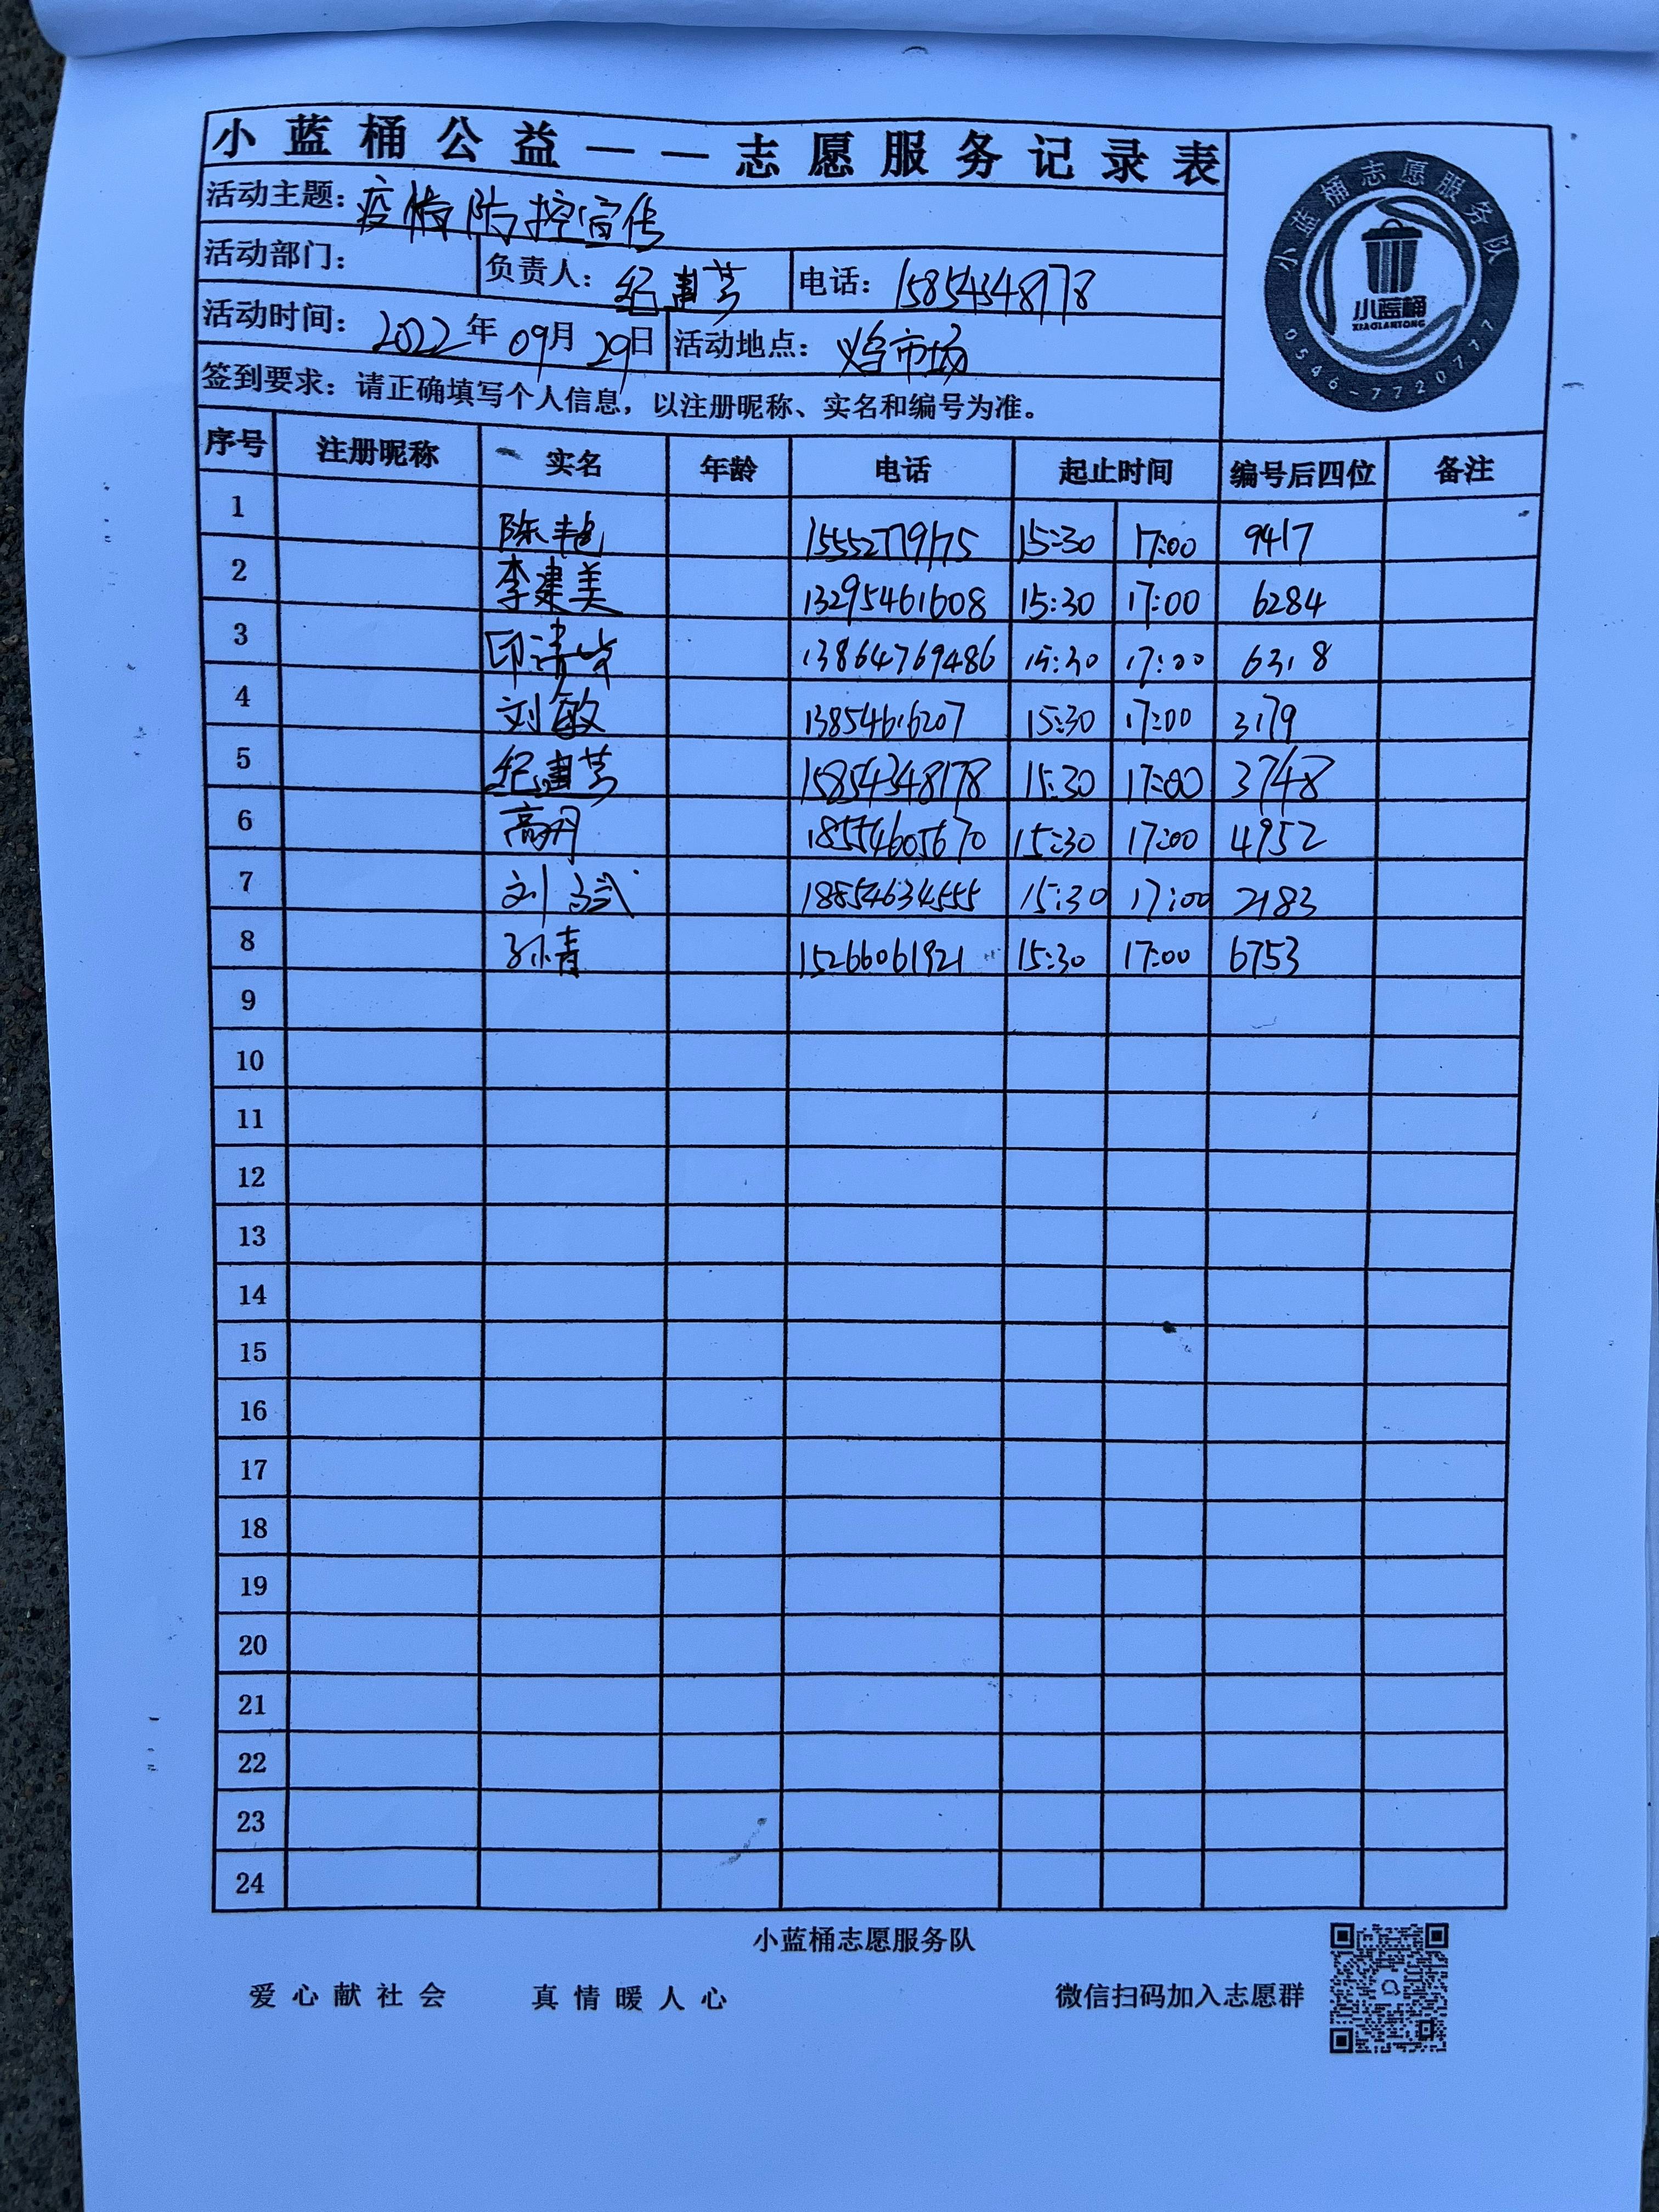 小蓝桶公益——志愿服务记录表
活动主题：疫情防控宣传
活动部门： 负责人：纪建芳 电话：15854348178
活动时间：2022年09月29日 活动地点：义乌市场
签到要求：请正确填写个人信息，以注册昵称、实名和编号为准。
小蓝桶志愿服务队
小蓝桶
XIAOLANTONG
0546-7720777
序号 注册昵称 实名 年龄 电话 起止时间 编号后四位 备注
1 陈艳 15552779175 15:30 17:00 9417
2 李建美 13295461608 15:30 17:00 6284
3 印清 13864769486 15:30 17:00 6318
4 刘敏 13854616207 15:30 17:00 3179
5 纪建芳 15854348178 15:30 17:00 3748
6 高丹 18554605670 15:30 17:00 4952
7 刘 18854634555 15:30 17:00 2183
8 孙青 15266061921 15:30 17:00 6753
9
10
11
12
13
14
15
16
17
18
19
20
21
22
23
24
小蓝桶志愿服务队
爱心献社会 真情暖人心 微信扫码加入志愿群